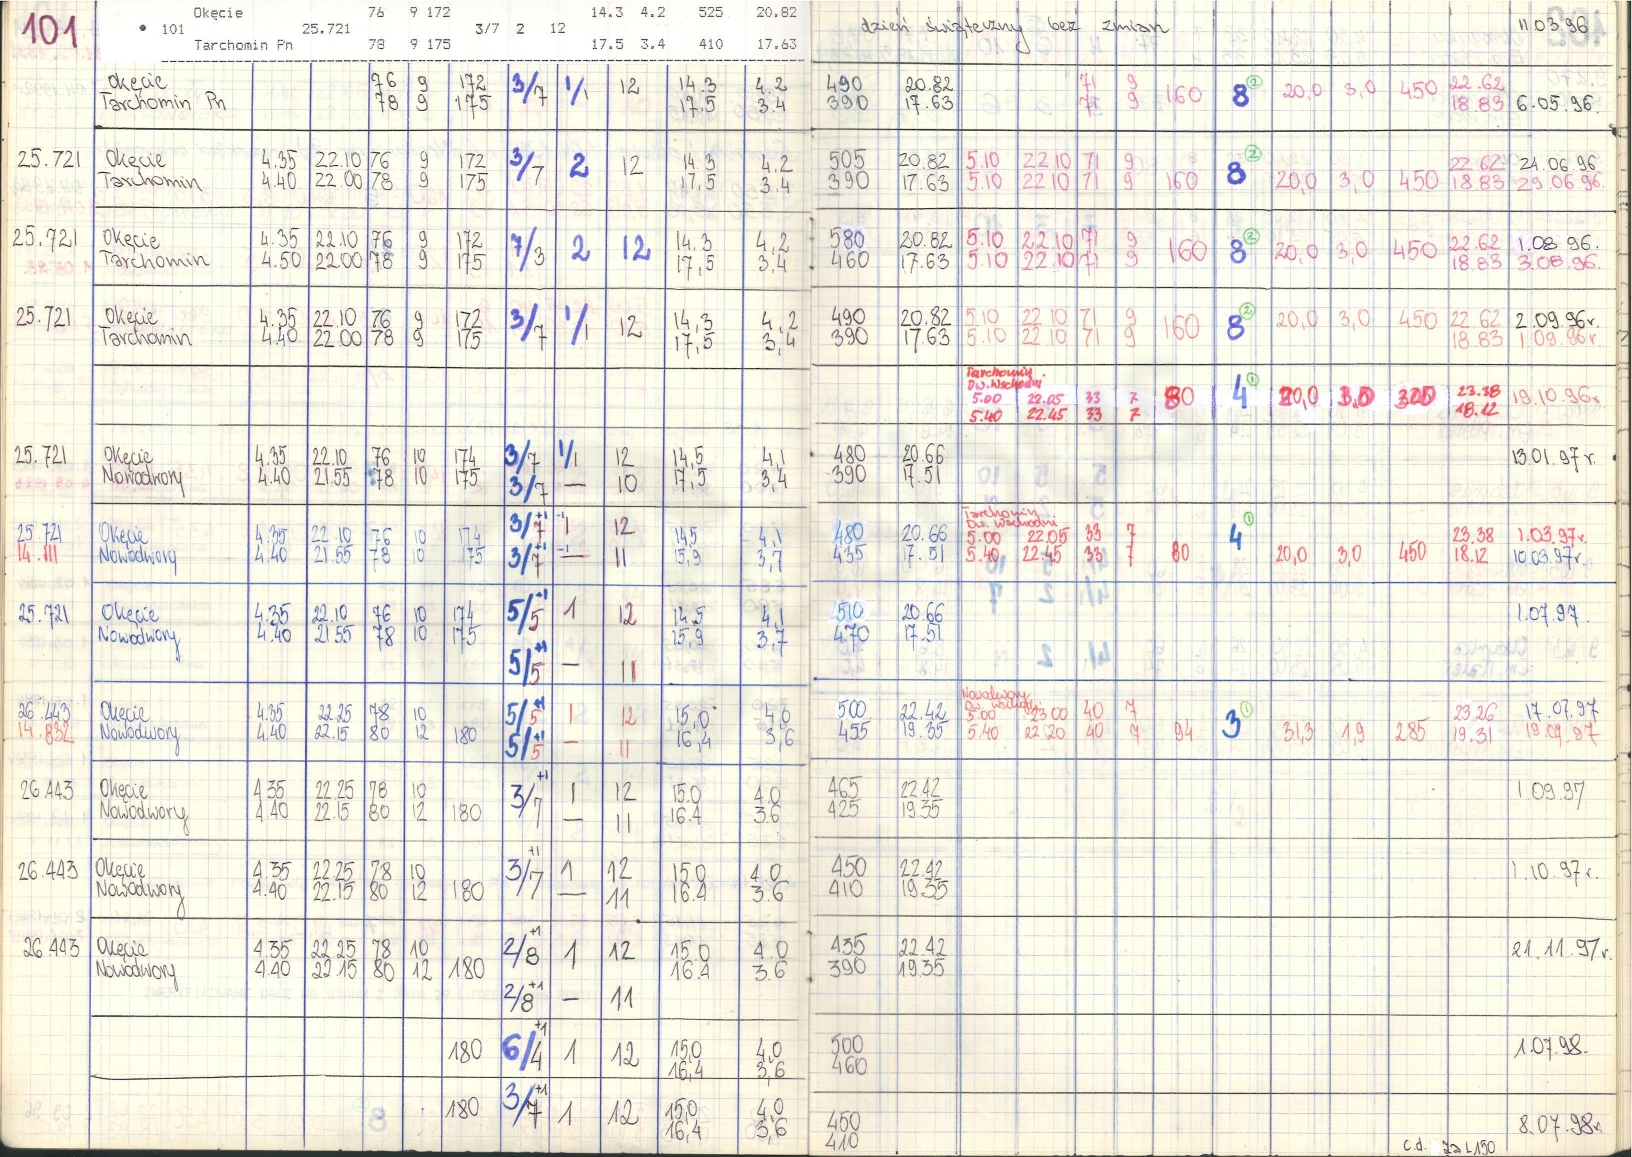 101
Okęcie 76 9 172 14.3 4.2 525 20.82
• 101 25.721 3/7 2 12
Tarchomin Pn 78 9 175 17.5 3.4 410 17.63
dzień świąteczny bez zmian 11.03.96
Okęcie 76 9 172 3/7 1/1 12 14.3 4.2 490 20.82 71 9 160 8 ② 20,0 3,0 450 22.62
Tarchomin Pn 78 9 175 17,5 3.4 390 17.63 71 9 18.83 6.05.96.
25.721 Okęcie 4.35 22.10 76 9 172 3/7 2 12 14.3 4.2 505 20.82 5.10 22.10 71 9 160 8 ② 20,0 3,0 450 22.62 24.06.96
Tarchomin 4.40 22.00 78 9 175 17,5 3.4 390 17.63 5.10 22.10 71 9 18.83 29.06.96.
25.721 Okęcie 4.35 22.10 76 9 172 7/3 2 12 14,3 4,2 580 20.82 5.10 22.10 71 9 160 8 ② 20,0 3,0 450 22.62 1.08.96.
Tarchomin 4.50 22.00 78 9 175 17,5 3,4 460 17.63 5.10 22.10 71 9 18.83 3.08.96.
25.721 Okęcie 4.35 22.10 76 9 172 3/7 1/1 12 14,3 4,2 490 20.82 5.10 22.10 71 9 160 8 ② 20,0 3,0 450 22.62 2.09.96r.
Tarchomin 4.40 22.00 78 9 175 17,5 3,4 390 17.63 5.10 22.10 71 9 18.83 1.09.96r.
Tarchomin
Dw. Wschodni
5.00 22.05 33 7 80 4 ① 20,0 3,0 320 23.38 19.10.96r
5.40 22.45 33 7 18.12
25.721 Okęcie 4.35 22.10 76 10 174 3/7 1/1 12 14,5 4,1 480 20.66 13.01.97r.
Nowodwory 4.40 21.55 78 10 175 3/7 — 10 17,5 3,4 390 17.51
Tarchomin
Dw. Wschodni
25.721 Okęcie 4.35 22.10 76 10 174 3/7 +1 -1 1 12 14,5 4,1 480 20.66 5.00 22.05 33 7 80 4 ① 20,0 3,0 450 23.38 1.03.97r.
14.III Nowodwory 4.40 21.55 78 10 175 3/7 +1 -1 — 11 15,9 3,7 435 17.51 5.40 22.45 33 7 18.12 10.03.97r.
25.721 Okęcie 4.35 22.10 76 10 174 5/5 +1 1 12 14,5 4,1 510 20.66 1.07.97.
Nowodwory 4.40 21.55 78 10 175 15,9 3,7 470 17.51
5/5 +1 — 11
Nowodwory
Dw. Wschodni
26.443 Okęcie 4.35 22.25 78 10 5/5 +1 1 12 15,0 4,0 500 22.42 5.00 23.00 40 7 94 3 ① 31,3 1,9 285 23.26 17.07.97
14.832 Nowodwory 4.40 22.15 80 12 180 5/5 +1 — 11 16,4 3,6 455 19.35 5.40 22.20 40 7 19.31 19.07.97
26.443 Okęcie 4.35 22.25 78 10 3/7 +1 1 12 15.0 4.0 465 22.42 1.09.97
Nowodwory 4.40 22.15 80 12 180 — 11 16.4 3.6 425 19.35
26.443 Okęcie 4.35 22.25 78 10 3/7 +1 1 12 15.0 4.0 450 22.42 1.10.97r.
Nowodwory 4.40 22.15 80 12 180 — 11 16.4 3.6 410 19.35
26.443 Okęcie 4.35 22.25 78 10 2/8 +1 1 12 15.0 4.0 435 22.42 21.11.97r.
Nowodwory 4.40 22.15 80 12 180 16.4 3.6 390 19.35
2/8 +1 — 11
180 6/4 +1 1 12 15,0 4,0 500 1.07.98.
16,4 3,6 460
180 3/7 +1 1 12 15,0 4,0 450 8.07.98r
16,4 3,6 410
c.d. za L150